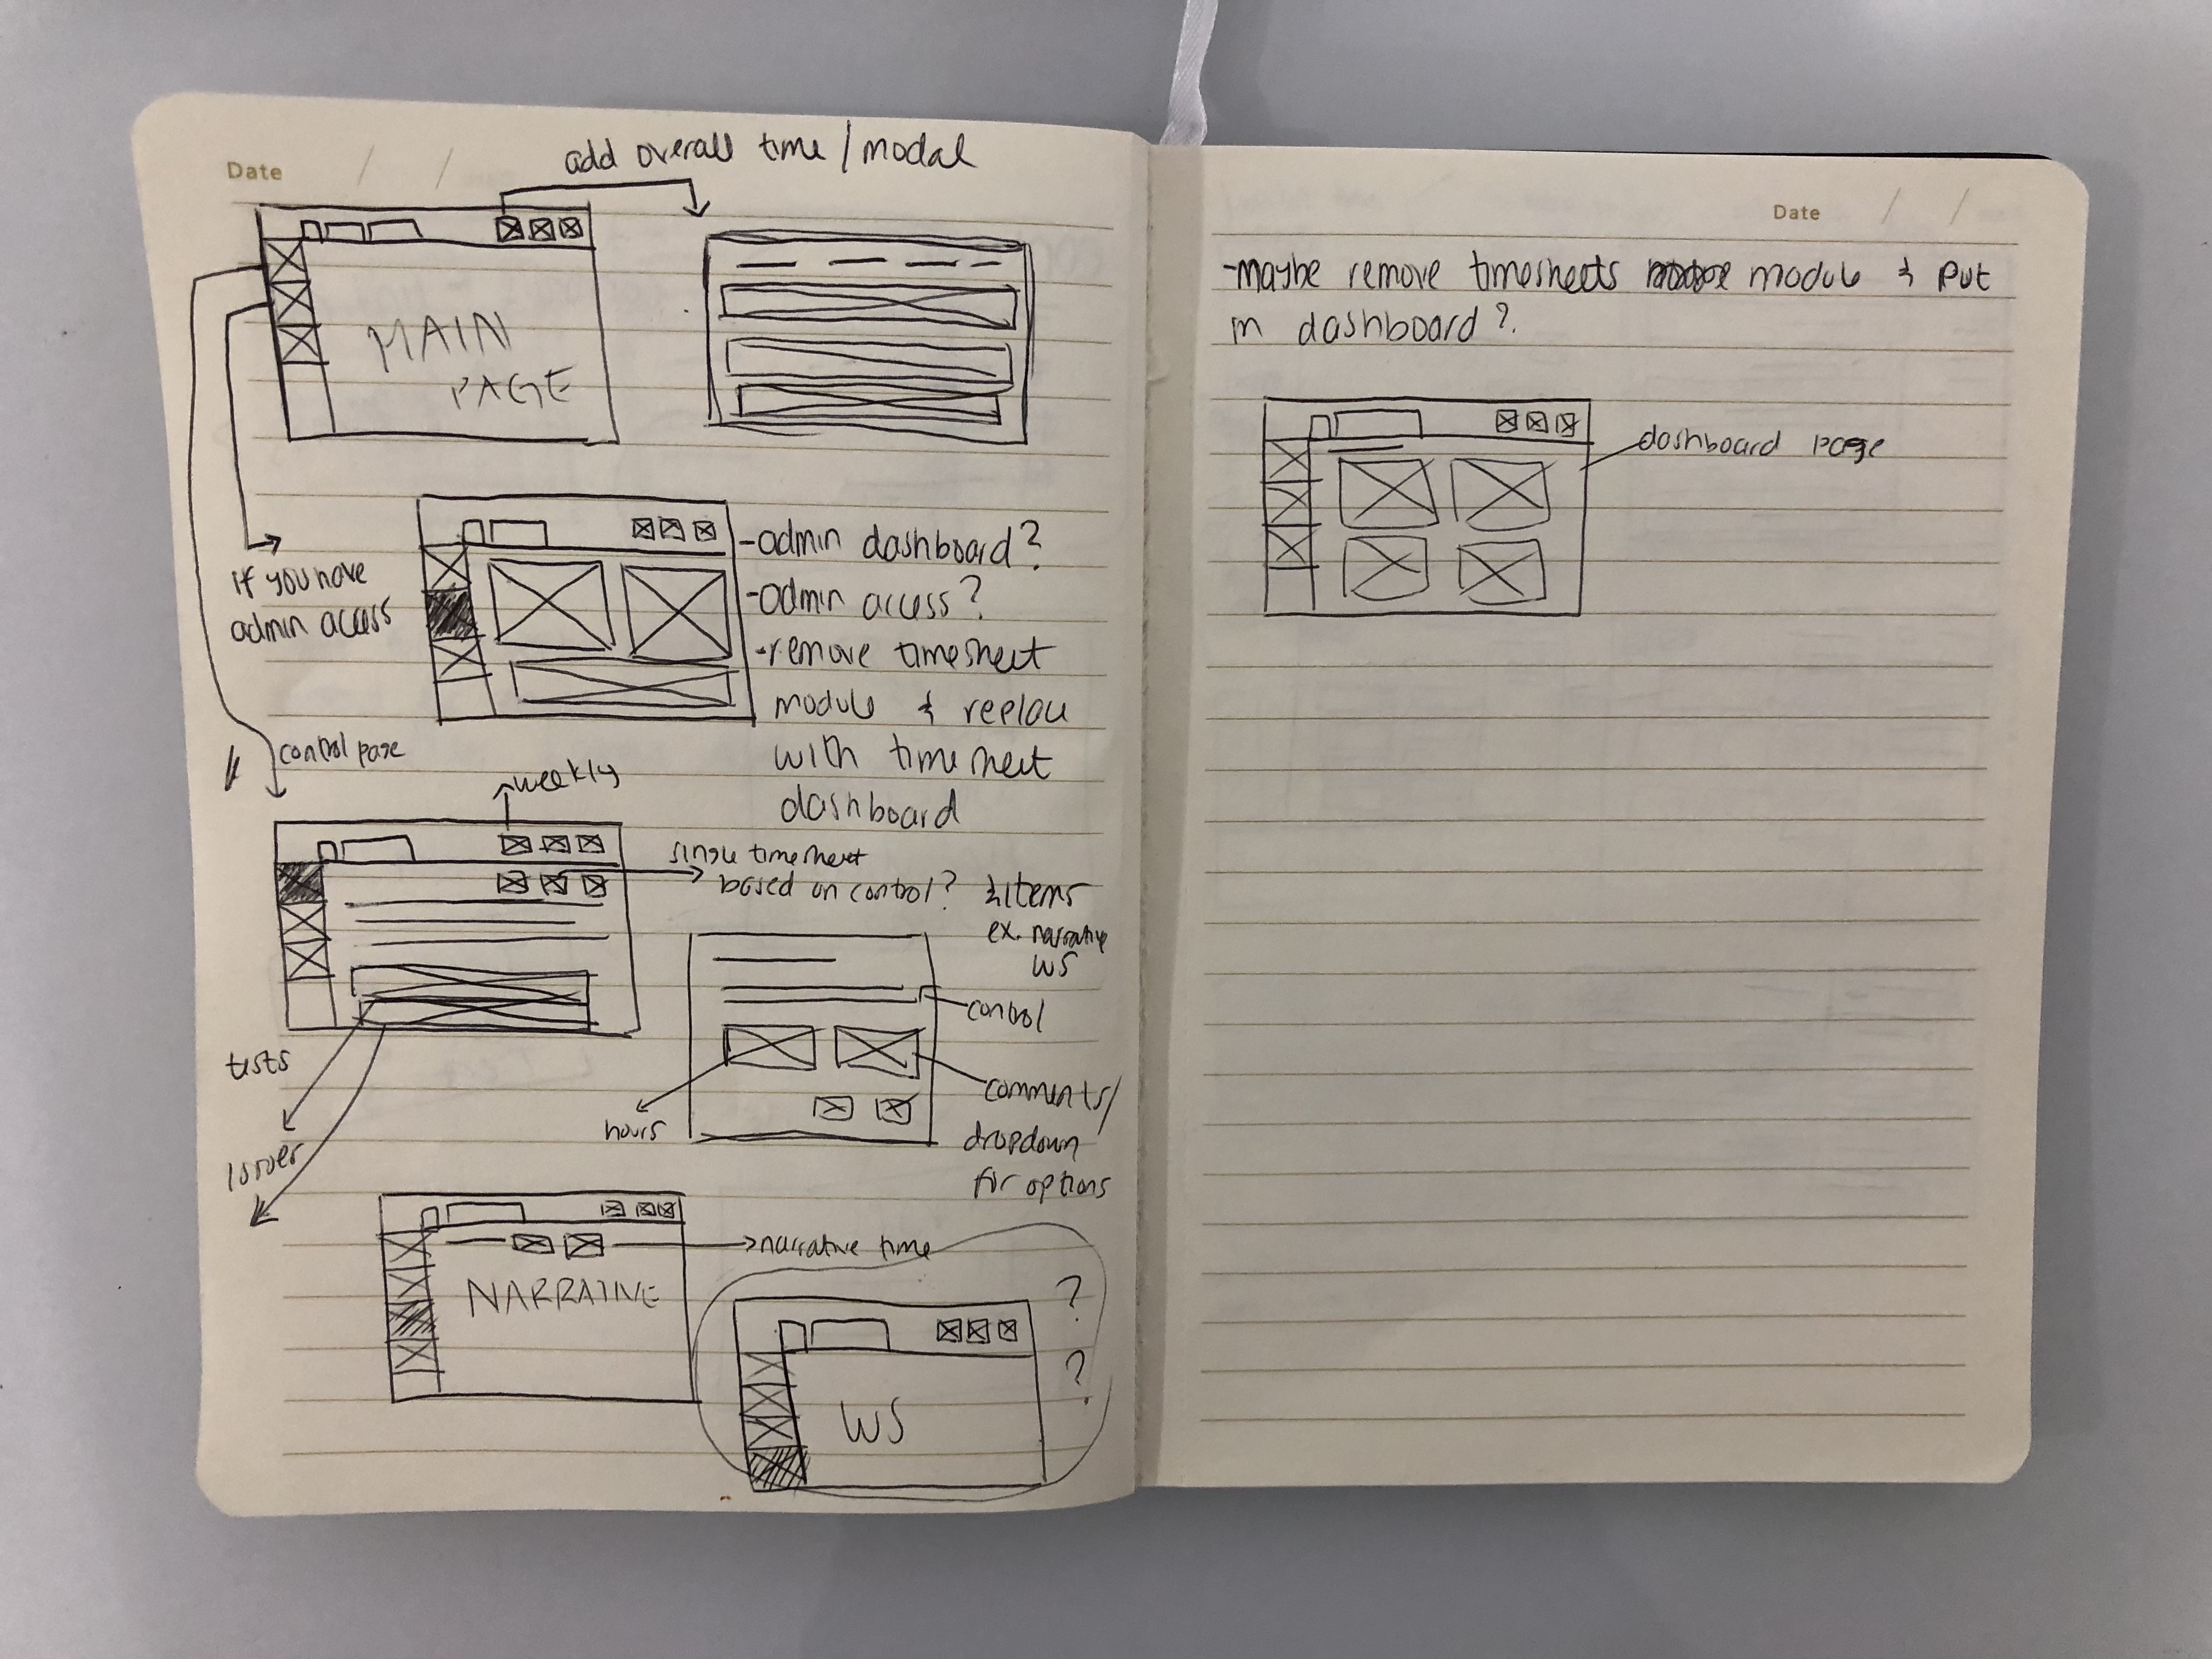 Date / /
add overall time / modal
MAIN
PAGE
if you have
admin access
-admin dashboard?
-admin access?
-remove timesheet
module & replace
with timesheet
dashboard
control page
weekly
single timesheet
based on control? & items
ex. narrative
WS
control
tests
hours
comments/
dropdown
for options
narrative time
NARRATIVE
?
?
WS
Date / /
-maybe remove timesheets module & put
in dashboard?
dashboard page